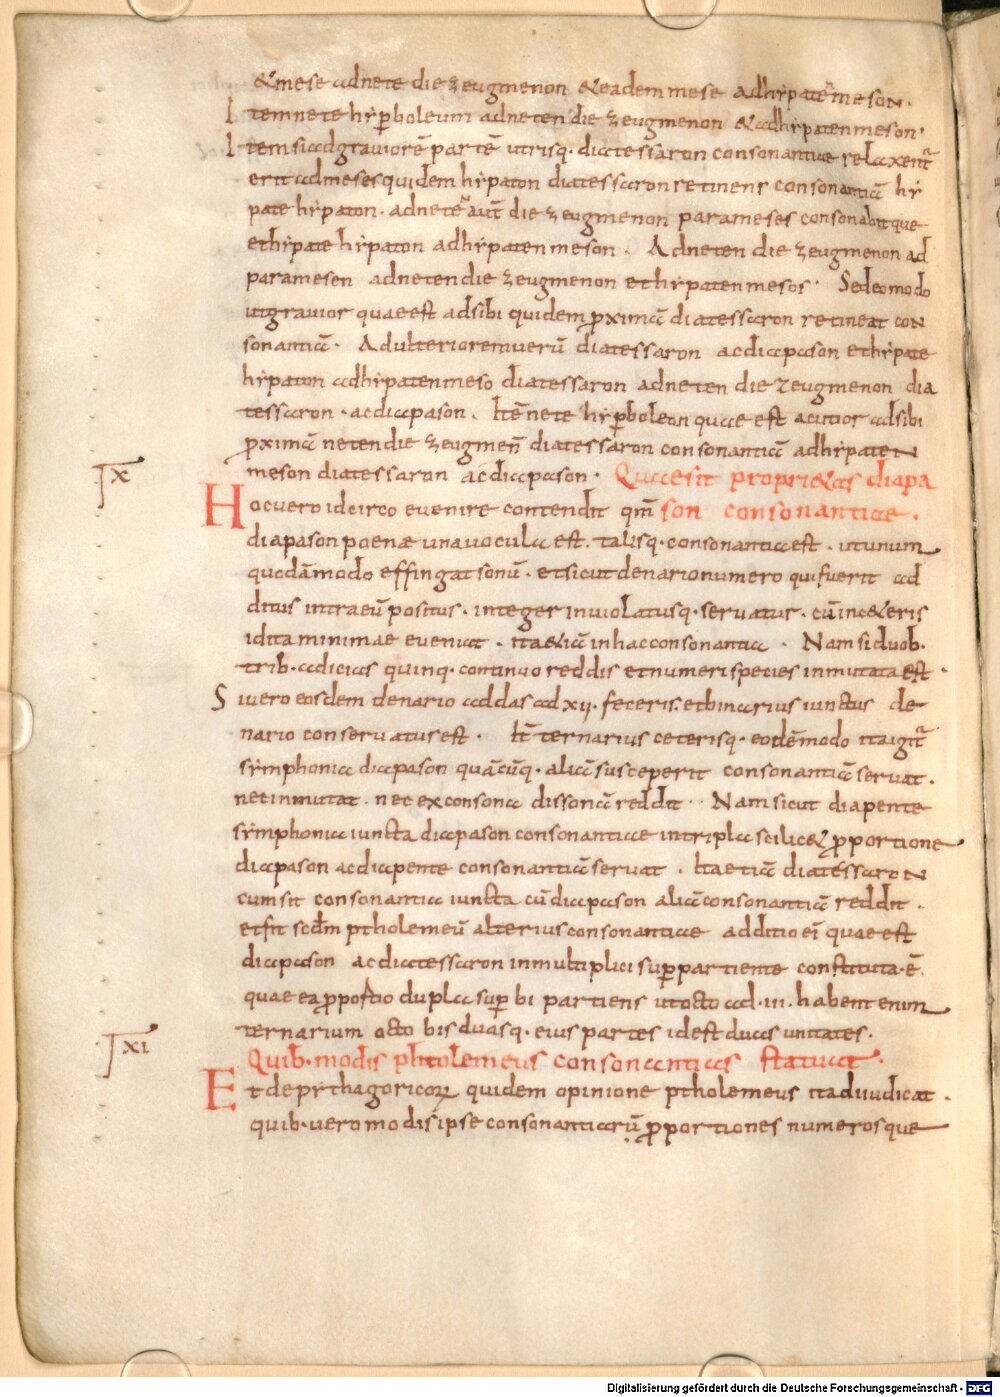 &mese adnete diezeugmenon &eadem mese adhypatē meson.
Item nete hyꝑboleum adneten diezeugmenon &adhypaten meson.
Item siadgrauiorē partē utrisq; diatessaron consonantiae relaxent̄
erit admeses quidem hypaton diatessaron retinens consonantiā hy
pate hypaton. adnetē aut̄ diezeugmenon parameses consonabitque
ethypate hypaton adhypaten meson. Adneten diezeugmenon ad
paramesen adneten diezeugmenon ethypaten mesos. Sedeomodo
utgrauior quaeest adsibi quidem ꝓximā diatessaron retineat con
sonantiā. Adulterioremuerū diatessaron acdiapason ethypate
hypaton adhypatenmeso diatessaron adneten diezeugmenon dia
tessaron. acdiapason. Itē nete hyꝑboleon quae est acutior adsibi
ꝓximā neten diezeugmen̄ diatessaron consonantiā adhypaten
meson diatessaron acdiapason. Quaesit propri&as diapa
X
Hocuero idcirco euenire contendit qm̄ son consonantiae.
diapason poenae unauocula est. talisq; consonantia est. utunum
quodāmodo effingat sonū. etsicut denario numero qui fuerit ad
ditus intraeū positus. integer inuiolatusq; seruatur. cū inc&eris
idita minimae eueniat. ita&iā inhac consonantia. Nam siduob;
trib; adicias quinq; continuo reddis etnumeri species inmutata est.
Siuero eosdem denario addas adxii. feceris. etbinarius iunctus de
nario conseruatus est. It̄ ternarius ceterisq; eodē modo itaigit̄
symphonia diapason quācūq; aliā susceperit consonantiā seruat.
necinmutat. nec exconsona dissonā reddit. Nam sicut diapente
symphonia iuncta diapason consonantiae intripla scilic& ꝓportione
diapason acdiapente consonantiā seruat. Itaetiā diatessaron
cumsit consonantia iuncta cū diapason aliā consonantiā reddit.
etfit scdm̄ ptholemeū alterius consonantiae additio ei quae est
diapason acdiatessaron inmultiplici suꝑpartiente constituta .ē.
quae ea ꝓportio dupla suꝑ bi partiens utocto ad .iii. habent enim
ternarium octo bis duasq; eius partes idest duas unitates.
XI
Quib; modis phtolemeus consonantias statuat.
Et depythagoricorꝝ quidem opinione ptholemeus itadiiudicat.
quib; uero modis ipse consonantiarū ꝓportiones numerosque
Digitalisierung gefördert durch die Deutsche Forschungsgemeinschaft - DFG